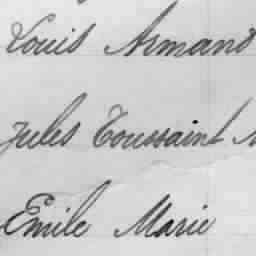 Louis Armand
Jules Toussaint
Emile Marie